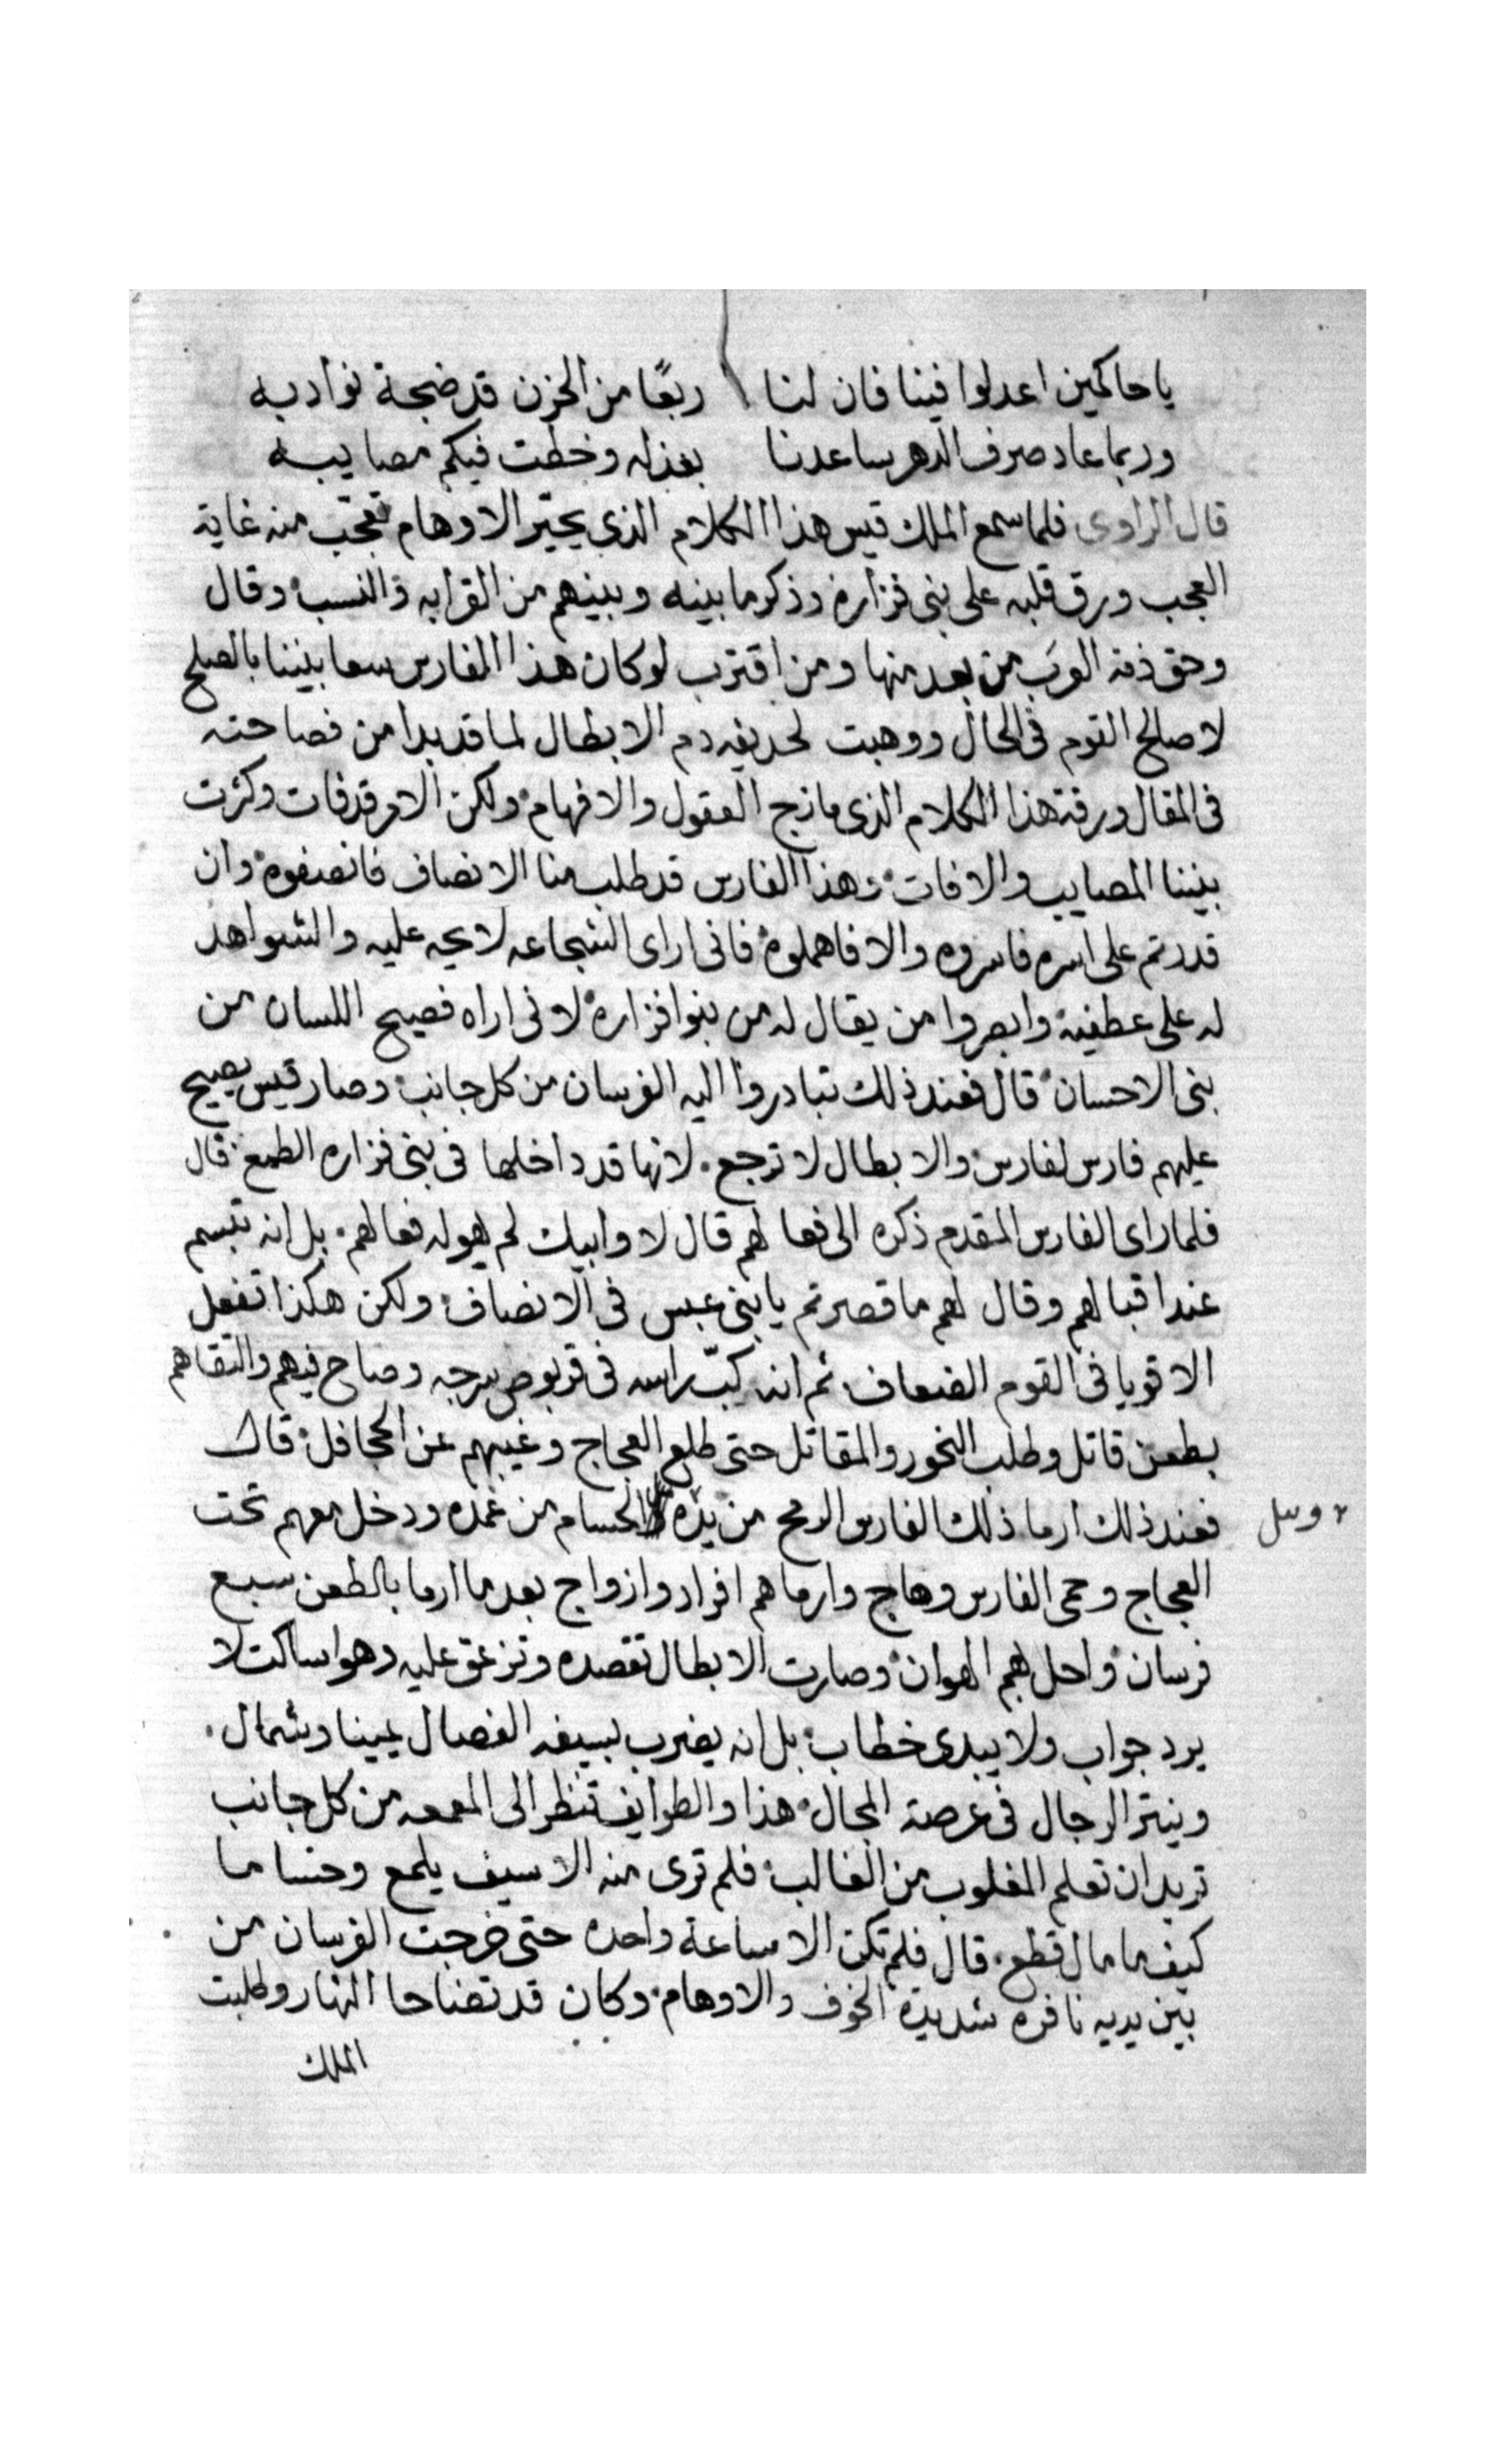 يا حاكمين اعدلوا فينا فان لنا ربعًا من الحزن قد ضجة نواديه
وربما عاد صرف الدهر ساعدنا بعزله وخطت فيكم مصايبه
قال الراوى فلما سمع الملك قيس هذا الكلام الذى يحيّر الاوهام تعجب منه غاية
العجب ورق قلبه على بنى فزاره وذكر ما بينه وبينهم من القرابه والنسب وقال
وحق ذمة العرب من بعد منها ومن اقترب لو كان هذا الفارس سعا بيننا بالصلح
لاصلح القوم فى الحال ووهبت لحذيفه دم الابطال لما قد بدا من فصاحته
فى المقال ورقة هذا الكلام الذى مازج العقول والافهام ولكن الامر قد فات وكثرت
بيننا المصايب والافات وهذا الفارس قد طلب منا الانصاف فانصفوه وان
قدرتم على اسره فاسروه والا فاهملوه فانى ارا الشجاعه لايحه عليه والشواهد
له على عطفيه وابصروا من يقال له من بنوا فزاره لانى اراه فصيح اللسان من
بنى الاحسان قال فعند ذلك تبادروا اليه الفرسان من كل جانب وصار قيس يصيح
عليهم فارس لفارس والابطال لا ترجع لانها قد داخلها فى بنى فزاره الطمع قال
فلما راى الفارس المقدم ذكره الى فعالهم قال لا وابيك لم يهوله فعالهم بل انه تبسم
عند اقبالهم وقال لهم ما قصرتم يا بنى عبس فى الانصاف ولكن هكذا تفعل
الاقويا فى القوم الضعاف ثم انه كبّ راسه فى قربوص سرجه وصاح فيهم والتقاهم
بطعن قاتل وطلب النحور والمقاتل حتى طلع العجاج وغيبهم عن الجحافل قال
فعند ذلك ارما ذلك الفارس الرمح من يده وسل الحسام من غمده ودخل معهم تحت
العجاج وحمى الفارس وهاج وارماهم افراد وازواج بعد ما ارما بالطعن سبع
فرسان واحل بهم الهوان وصارت الابطال تقصده وتزعق عليه وهوا ساكت لا
يرد جواب ولا يبدى خطاب بل انه يضرب بسيفه الفصال يمينا وشمال
وينثر الرجال فى عرصة المجال هذا والطوايف تنظر الى المعمعه من كل جانب
تريد ان تعلم المغلوب من الغالب فلم ترى منه الا سيف يلمع وحساما
كيف ما مال قطع قال فلم تكن الا ساعة واحده حتى خرجت الفرسان من
بين يديه نافره شديدة الخوف والاوهام وكان قد تضاحا النهار وطلبت
الملك